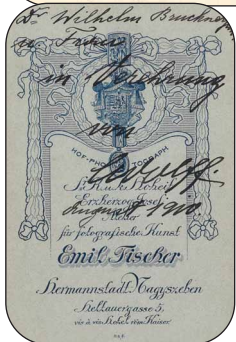 Dr Wilhelm Bruckner
u. Frau
in Verehrung
von
HOF-PHOTOGRAPH
Sr. K. u. k. Hoheit
Erzherzog Josef
August 1910.
Atelier
für fotografische Kunst
Emil Fischer
Hermannstadt. Nagyszeben
Heltauergasse 5,
vis à vis Hotel röm. Kaiser.